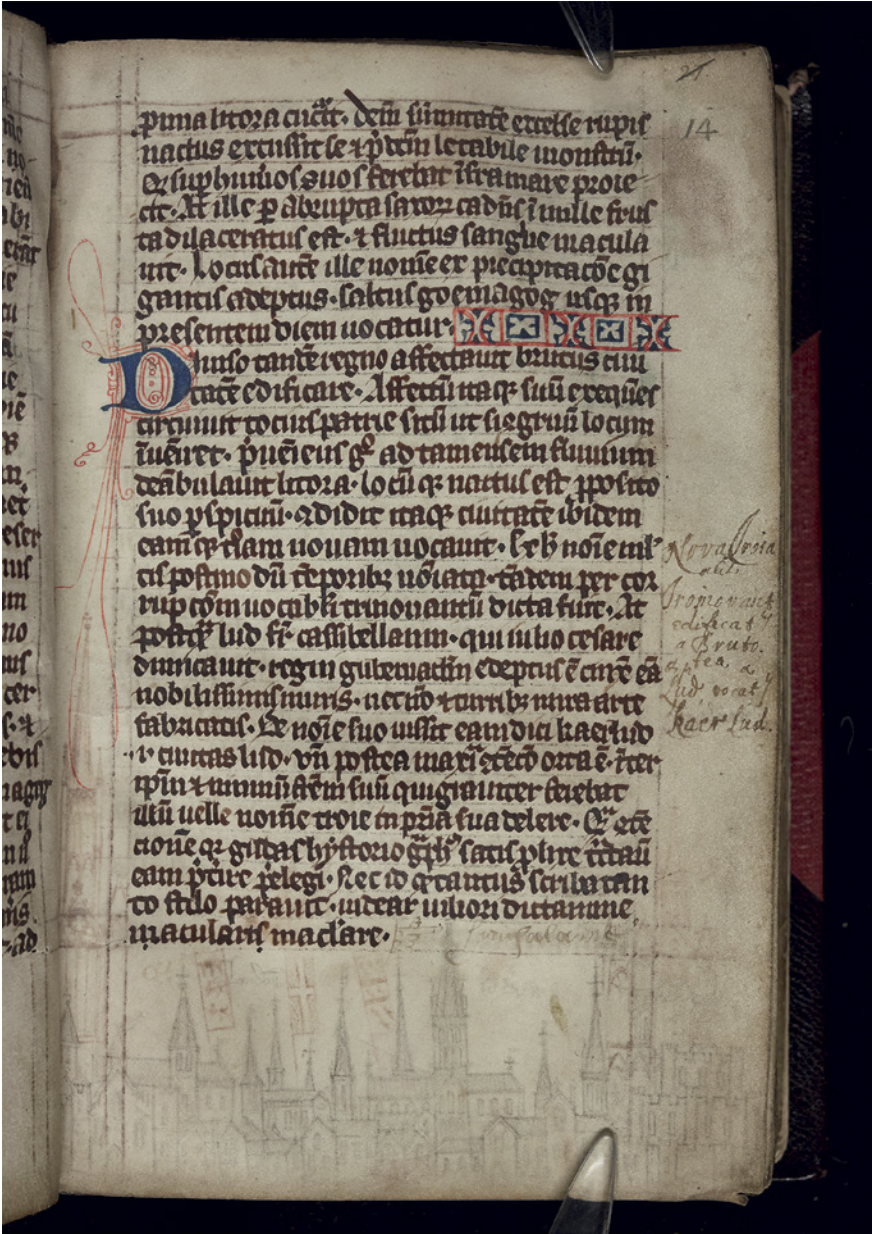 21
14
p͛xima litora cucͥrit. Dein sūmitatē excelse rupis
nactus excussit se ⁊ p̄dc̄m letabile monstrū.
Qͥ suꝑ humͥos suos ferebat īfra mare proie
cit. At ille ꝑ abrupta saxoꝝ cadēs ī mille frus
ta dilaceratus est. ⁊ fluctus sanguīe macula
uit. Locus autē ille nomē ex precipitacōe gi
gantis adeptus. saltus goemagog usqꝫ in
presentem diem uocatur.
Diuiso tandē regno affectauit brutus ciui
tatē edificare. Affectū itaqꝫ suū exequēs
circuiuit tocius patrie sitū ut ↄgruū locum
īuēiret. ꝑuēiens gͦ ad tamensem fluuium
deābulauit litora. locū qꝫ nactus est ꝓposito
suo ꝑspicuū. ↄdidit itaqꝫ ciuitatē ibidem
eamqꝫ t͛iam nouam uocauit. hͨ noīe ml̓
tis postmodū tēporibꝫ noīata. tādem per cor
rupcōm uocabli trinouantū dicta fuit. At
postqͣ lud fr̄ cassibellanni. qui iulio cesare
dimicauit. regni gubernaclm̄ edeptus ē cinx̄ eā
nobilissimis muris. necnō ⁊ turribꝫ mira arte
fabricatis. De noīe suo iussit eam dici kaerlud
.i. ciuitas lud. vn̄ postea maxīa ↄtēcō orta ē. īter
ip̄m ⁊ nenniū fr̄em suū qui grauiter ferebat
illū uelle nomē troie in pr̄ia sua delere. Qͣ ↄtē
cionē qꝛ gildas hystoriogͣphꝰ satis ꝓlixe tͣctauͥ
eam p̄tire p̄elegi. Ne id qͦ tantus scriba tan
to stilo parauit. uidear uiliori dictamine
maculare.
Nova Troia
alit
Trinovant
edificat
a Bruto.
postea a
Lud vocat
Kaer Lud.